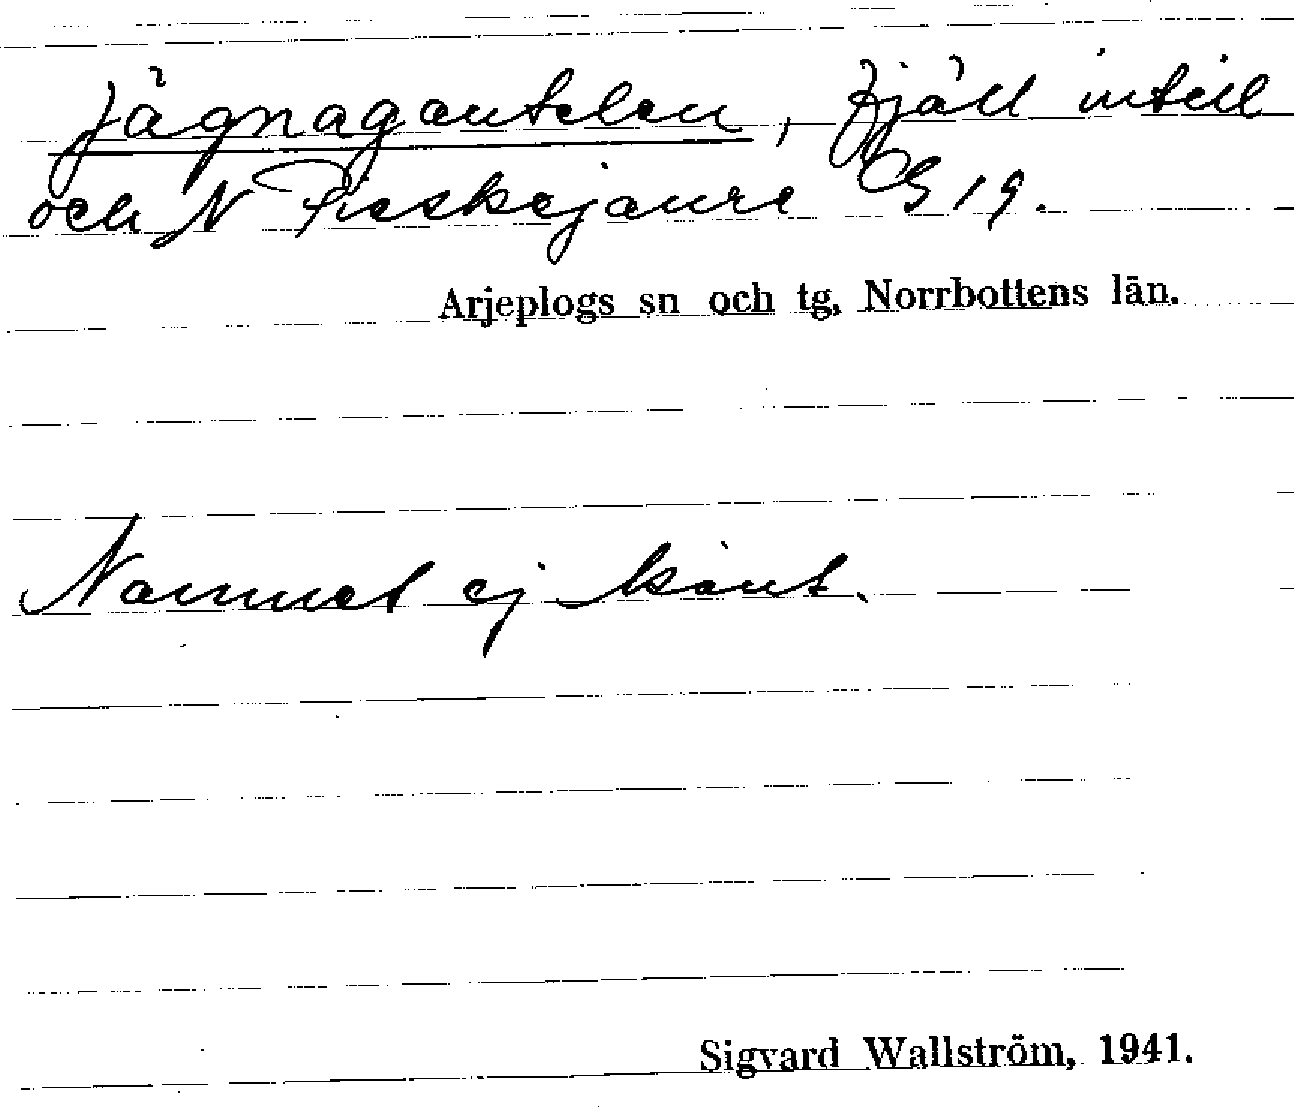 Jägnagautelen, fjäll intill
och N Pieskejaure G 19.
Arjeplogs sn och tg, Norrbottens län.
Namnet ej känt.
Sigvard Wallström, 1941.